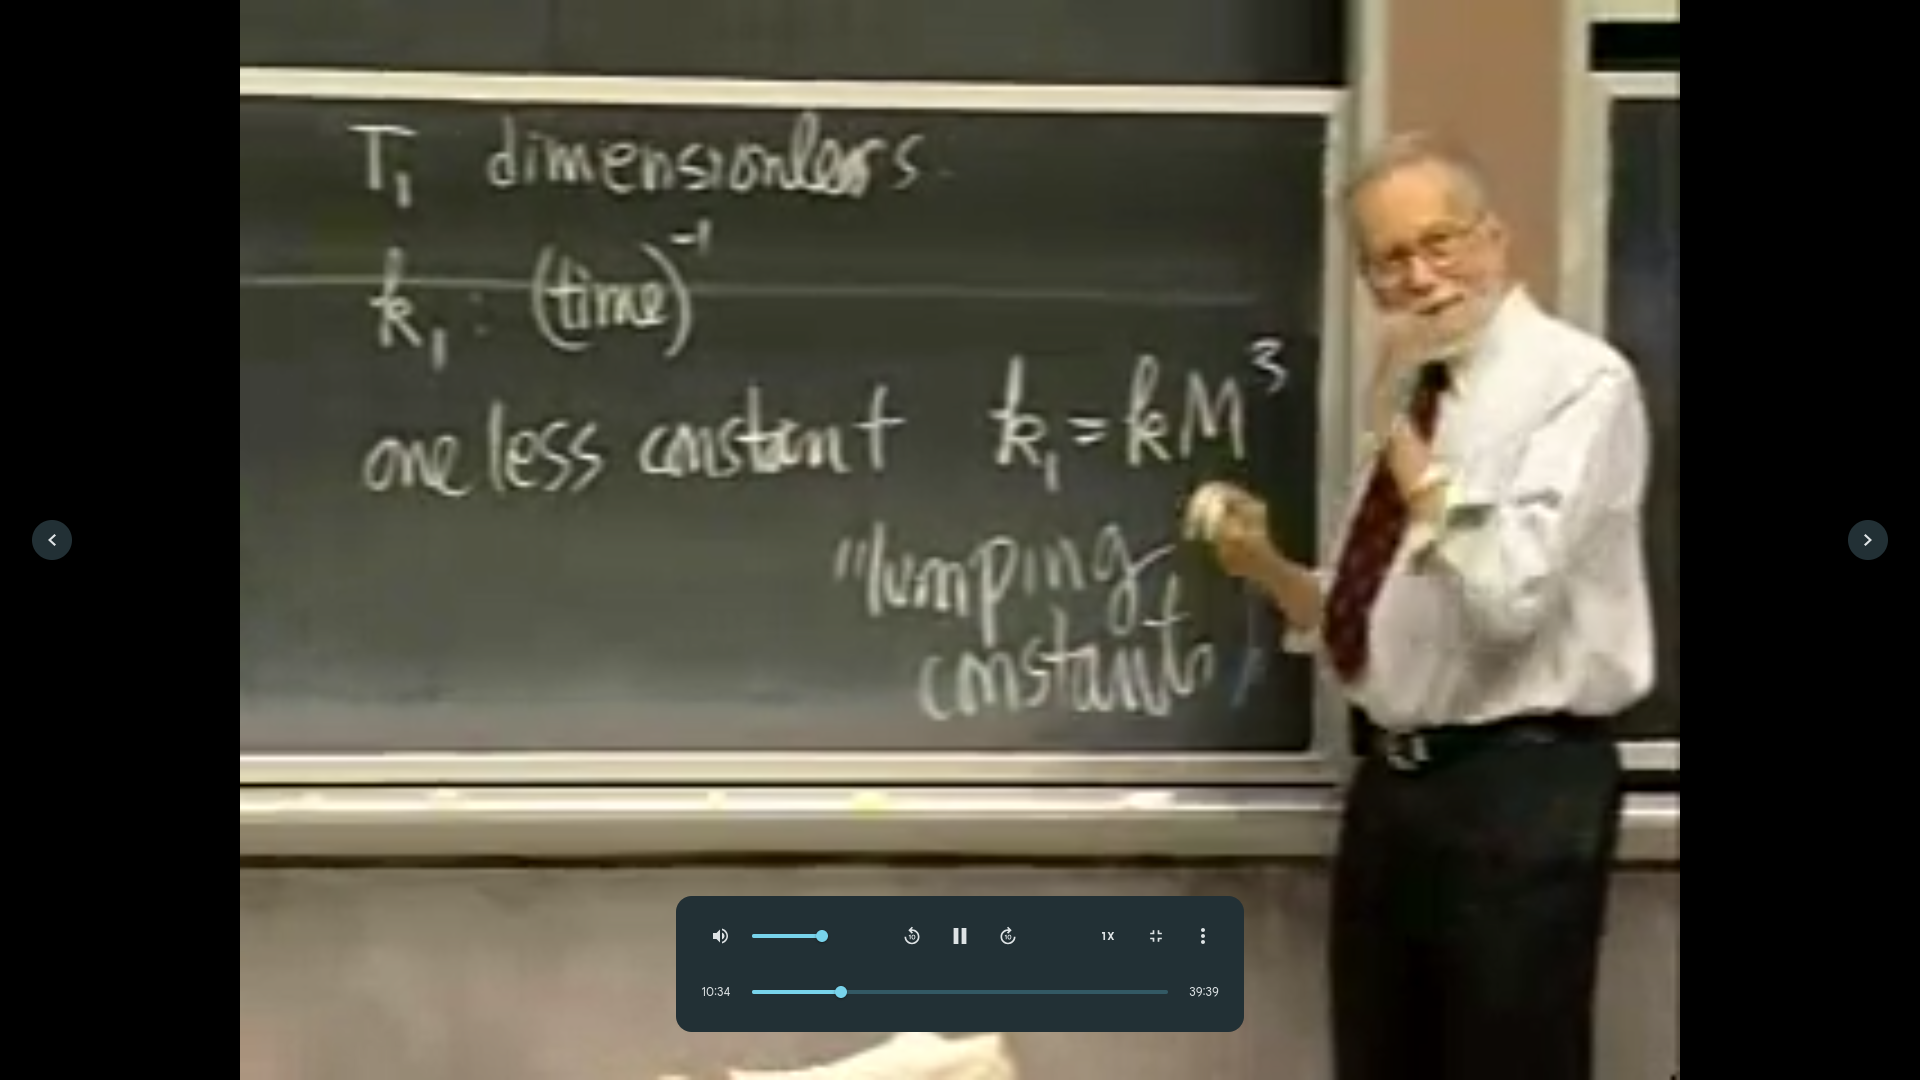 T₁ dimensionless
k₁ : (time)⁻¹
one less constant k₁ = kM³
"lumping
constants"
10
10
1X
10:34
39:39